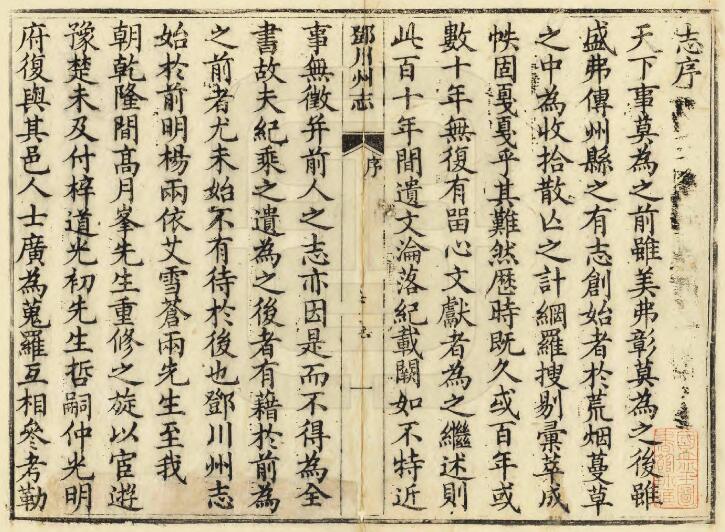 志序
天下事莫為之前雖美弗彰莫為之後雖
盛弗傳州縣之有志創始者於荒烟蔓草
之中為收拾散亾之計網羅搜剔彚萃成
帙固戛戛乎其難然歷時既久或百年或
數十年無復有畱心文獻者為之繼述則
此百十年間遺文淪落紀載闕如不特近
鄧川州志
序
一
事無徵并前人之志亦因是而不得為全
書故夫紀乘之遺為之後者有藉於前為
之前者尤未始不有待於後也鄧川州志
始於前明楊兩依艾雪蒼兩先生至我
朝乾隆間高月峯先生重修之旋以宦遊
豫楚未及付梓道光初先生哲嗣仲光明
府復與其邑人士廣為蒐羅互相叅考勒